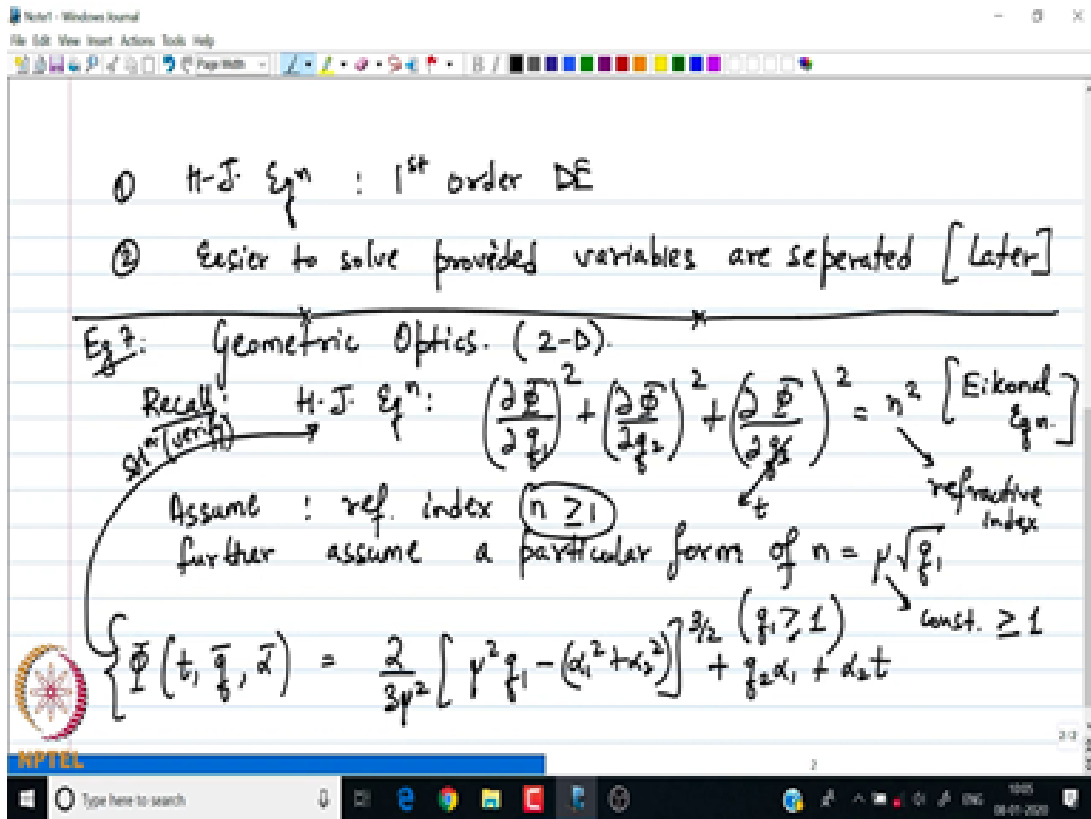 Note1 - Windows Journal
File Edit View Insert Actions Tools Help
Page Width
B I
① H-J. Eqⁿ : 1ˢᵗ order DE
② Easier to solve provided variables are seperated [Later]
Eg 7: Geometric Optics. (2-D).
Recall: H.J. Eqⁿ: (∂Φ/∂q₁)² + (∂Φ/∂q₂)² + (∂Φ/∂t)² = n² [Eikonal Eqn.]
Solⁿ (verify)
t
refractive index
Assume : ref. index n ≥ 1
further assume a particular form of n = μ√q₁
(q₁ ≥ 1) const. ≥ 1
Φ(t, q̄, ᾱ) = 2/3μ² [μ²q₁ - (α₁² + α₂²)]^3/2 + q₂α₁ + α₂t
2/2
NPTEL
2
Type here to search
ENG
10:05
08-01-2020